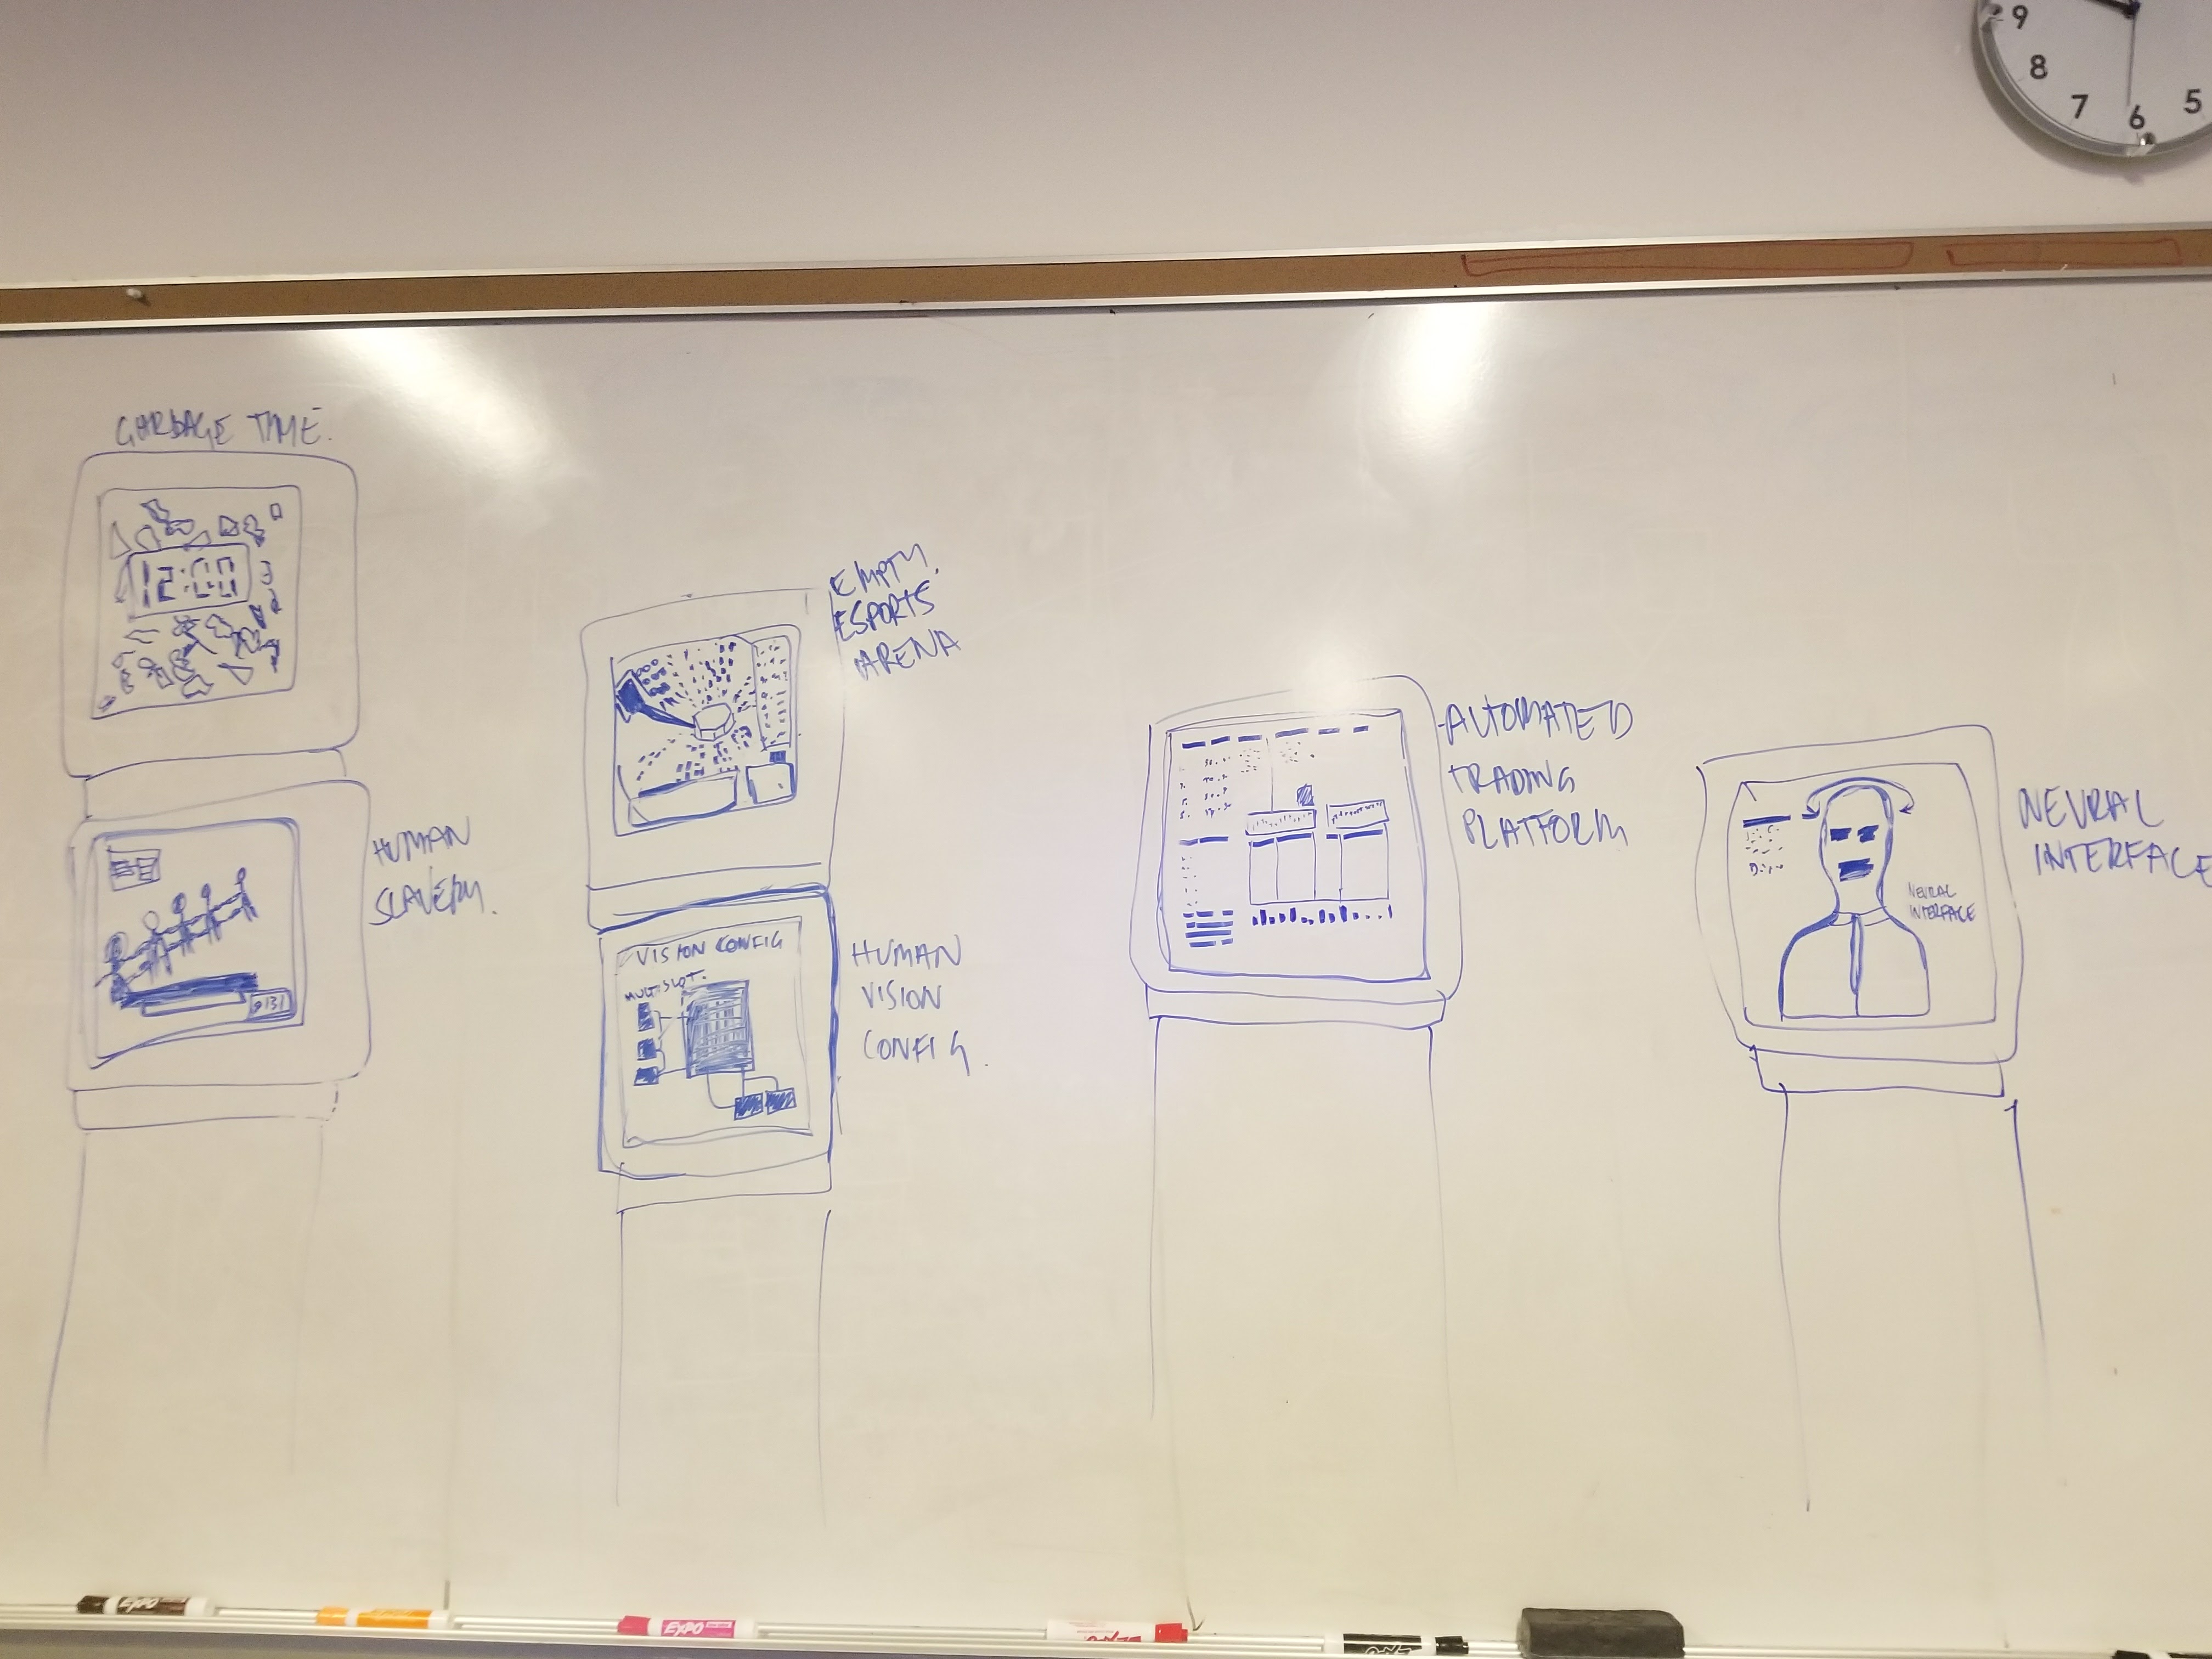 9
8
7
6
5
GARBAGE TIME.
12:00
HUMAN
SLAVERY.
EMPTY
ESPORTS
ARENA
VISION CONFIG
MULTISLOT.
HUMAN
VISION
CONFIG.
AUTOMATED
TRADING
PLATFORM
NEURAL
INTERFACE
NEURAL
INTERFACE
EXPO
EXPO